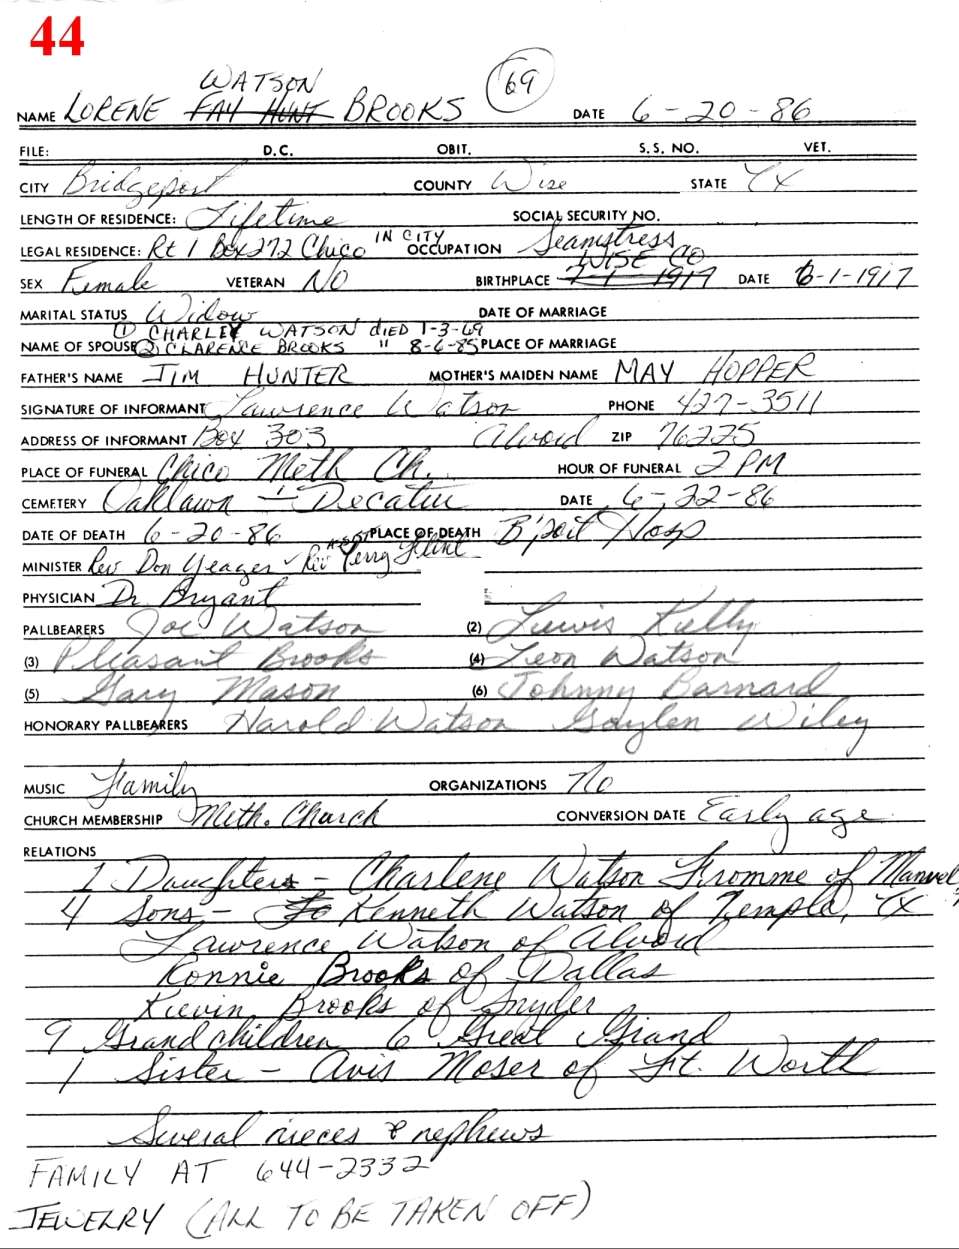 44
WATSON
69
NAME LORENE FAY HUNT BROOKS DATE 6-20-86
FILE: D.C. OBIT. S.S. NO. VET.
CITY Bridgeport COUNTY Wise STATE TX
LENGTH OF RESIDENCE: Lifetime SOCIAL SECURITY NO.
LEGAL RESIDENCE: Rt 1 Box 272 Chico IN CITY OCCUPATION Seamstress
WISE CO
SEX Female VETERAN NO BIRTHPLACE 7-1-1917 DATE 6-1-1917
MARITAL STATUS Widow DATE OF MARRIAGE
① CHARLEY WATSON DIED 1-3-69
NAME OF SPOUSE ② CLARENCE BROOKS " 8-6-85 PLACE OF MARRIAGE
FATHER'S NAME JIM HUNTER MOTHER'S MAIDEN NAME MAY HOPPER
SIGNATURE OF INFORMANT Lawrence Watson PHONE 427-3511
ADDRESS OF INFORMANT Box 303 Alvord ZIP 76225
PLACE OF FUNERAL Chico Meth Ch. HOUR OF FUNERAL 2 PM
CEMETERY Oaklawn - Decatur DATE 6-22-86
DATE OF DEATH 6-20-86 PLACE OF DEATH B'port Hosp
ASST
MINISTER Rev Don Yeager - Rev Terry Flint
PHYSICIAN Dr Bryant
PALLBEARERS Joe Watson (2) Lewis Kelly
(3) Pleasant Brooks (4) Leon Watson
(5) Gary Mason (6) Johnny Barnard
HONORARY PALLBEARERS Harold Watson Gaylen Wiley
MUSIC Family ORGANIZATIONS No
CHURCH MEMBERSHIP Meth. Church CONVERSION DATE Early age
RELATIONS
1 Daughters - Charlene Watson Fromme of Manvel,
4 Sons - Kenneth Watson of Temple, TX
Lawrence Watson of Alvord
Ronnie Brooks of Dallas
Kievin Brooks of Snyder
9 Grandchildren 6 Great Grand
1 Sister - Avis Moser of Ft. Worth
Several nieces & nephews
FAMILY AT 644-2332
JEWELRY (ALL TO BE TAKEN OFF)